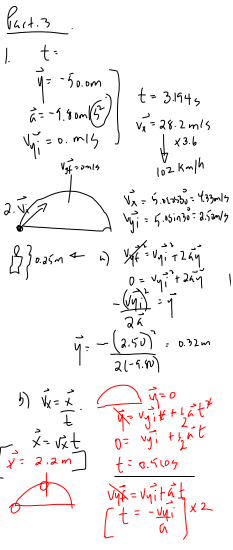 Part.3
1. t =
y⃗ = -50.0m
a⃗ = -9.80m/s²
v⃗yi = 0. m/s
t = 3.194s
v⃗x = 28.2m/s
↓ x3.6
102 km/h
v⃗yf = 0m/s
2. v⃗x
v⃗x = 5.0cos30° = 4.33m/s
v⃗yi = 5.0sin30° = 2.50m/s
} 0.25m ← a) v⃗yf² = v⃗yi² + 2a⃗y⃗
0 = v⃗yi² + 2a⃗y⃗
-(v⃗yi)²/2a⃗ = y⃗
y⃗ = -(2.50)²/2(-9.80) = 0.32m
b) v⃗x = x⃗/t
x⃗ = v⃗x t
[x⃗ = 2.2m]
y⃗ = 0
y⃗ = v⃗yi t + ½ a⃗ t²
0 = v⃗yi + ½ a⃗ t
t = 0.510s
v⃗yf = v⃗yi + a⃗ t
[t = -v⃗yi/a] x2